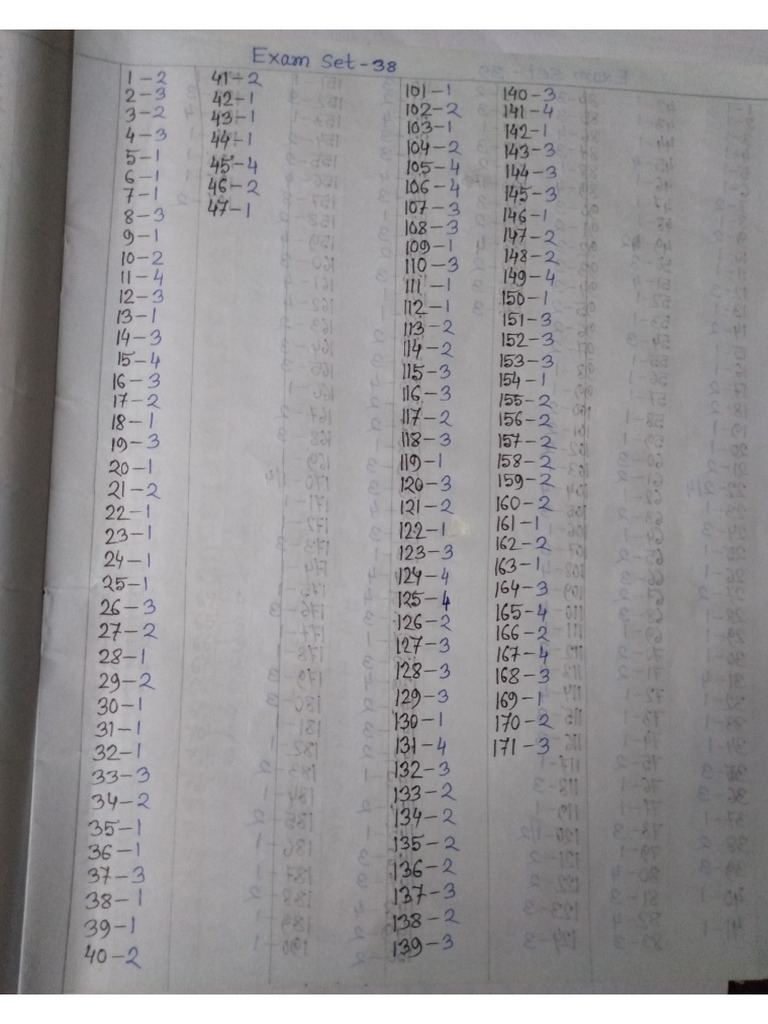 Exam Set-38
1-2
2-3
3-2
4-3
5-1
6-1
7-1
8-3
9-1
10-2
11-4
12-3
13-1
14-3
15-4
16-3
17-2
18-1
19-3
20-1
21-2
22-1
23-1
24-1
25-1
26-3
27-2
28-1
29-2
30-1
31-1
32-1
33-3
34-2
35-1
36-1
37-3
38-1
39-1
40-2
41-2
42-1
43-1
44-1
45-4
46-2
47-1
101-1
102-2
103-1
104-2
105-4
106-4
107-3
108-3
109-1
110-3
111-1
112-1
113-2
114-2
115-3
116-3
117-2
118-3
119-1
120-3
121-2
122-1
123-3
124-4
125-4
126-2
127-3
128-3
129-3
130-1
131-4
132-3
133-2
134-2
135-2
136-2
137-3
138-2
139-3
140-3
141-4
142-1
143-3
144-3
145-3
146-1
147-2
148-2
149-4
150-1
151-3
152-3
153-3
154-1
155-2
156-2
157-2
158-2
159-2
160-2
161-1
162-2
163-1
164-3
165-4
166-2
167-4
168-3
169-1
170-2
171-3